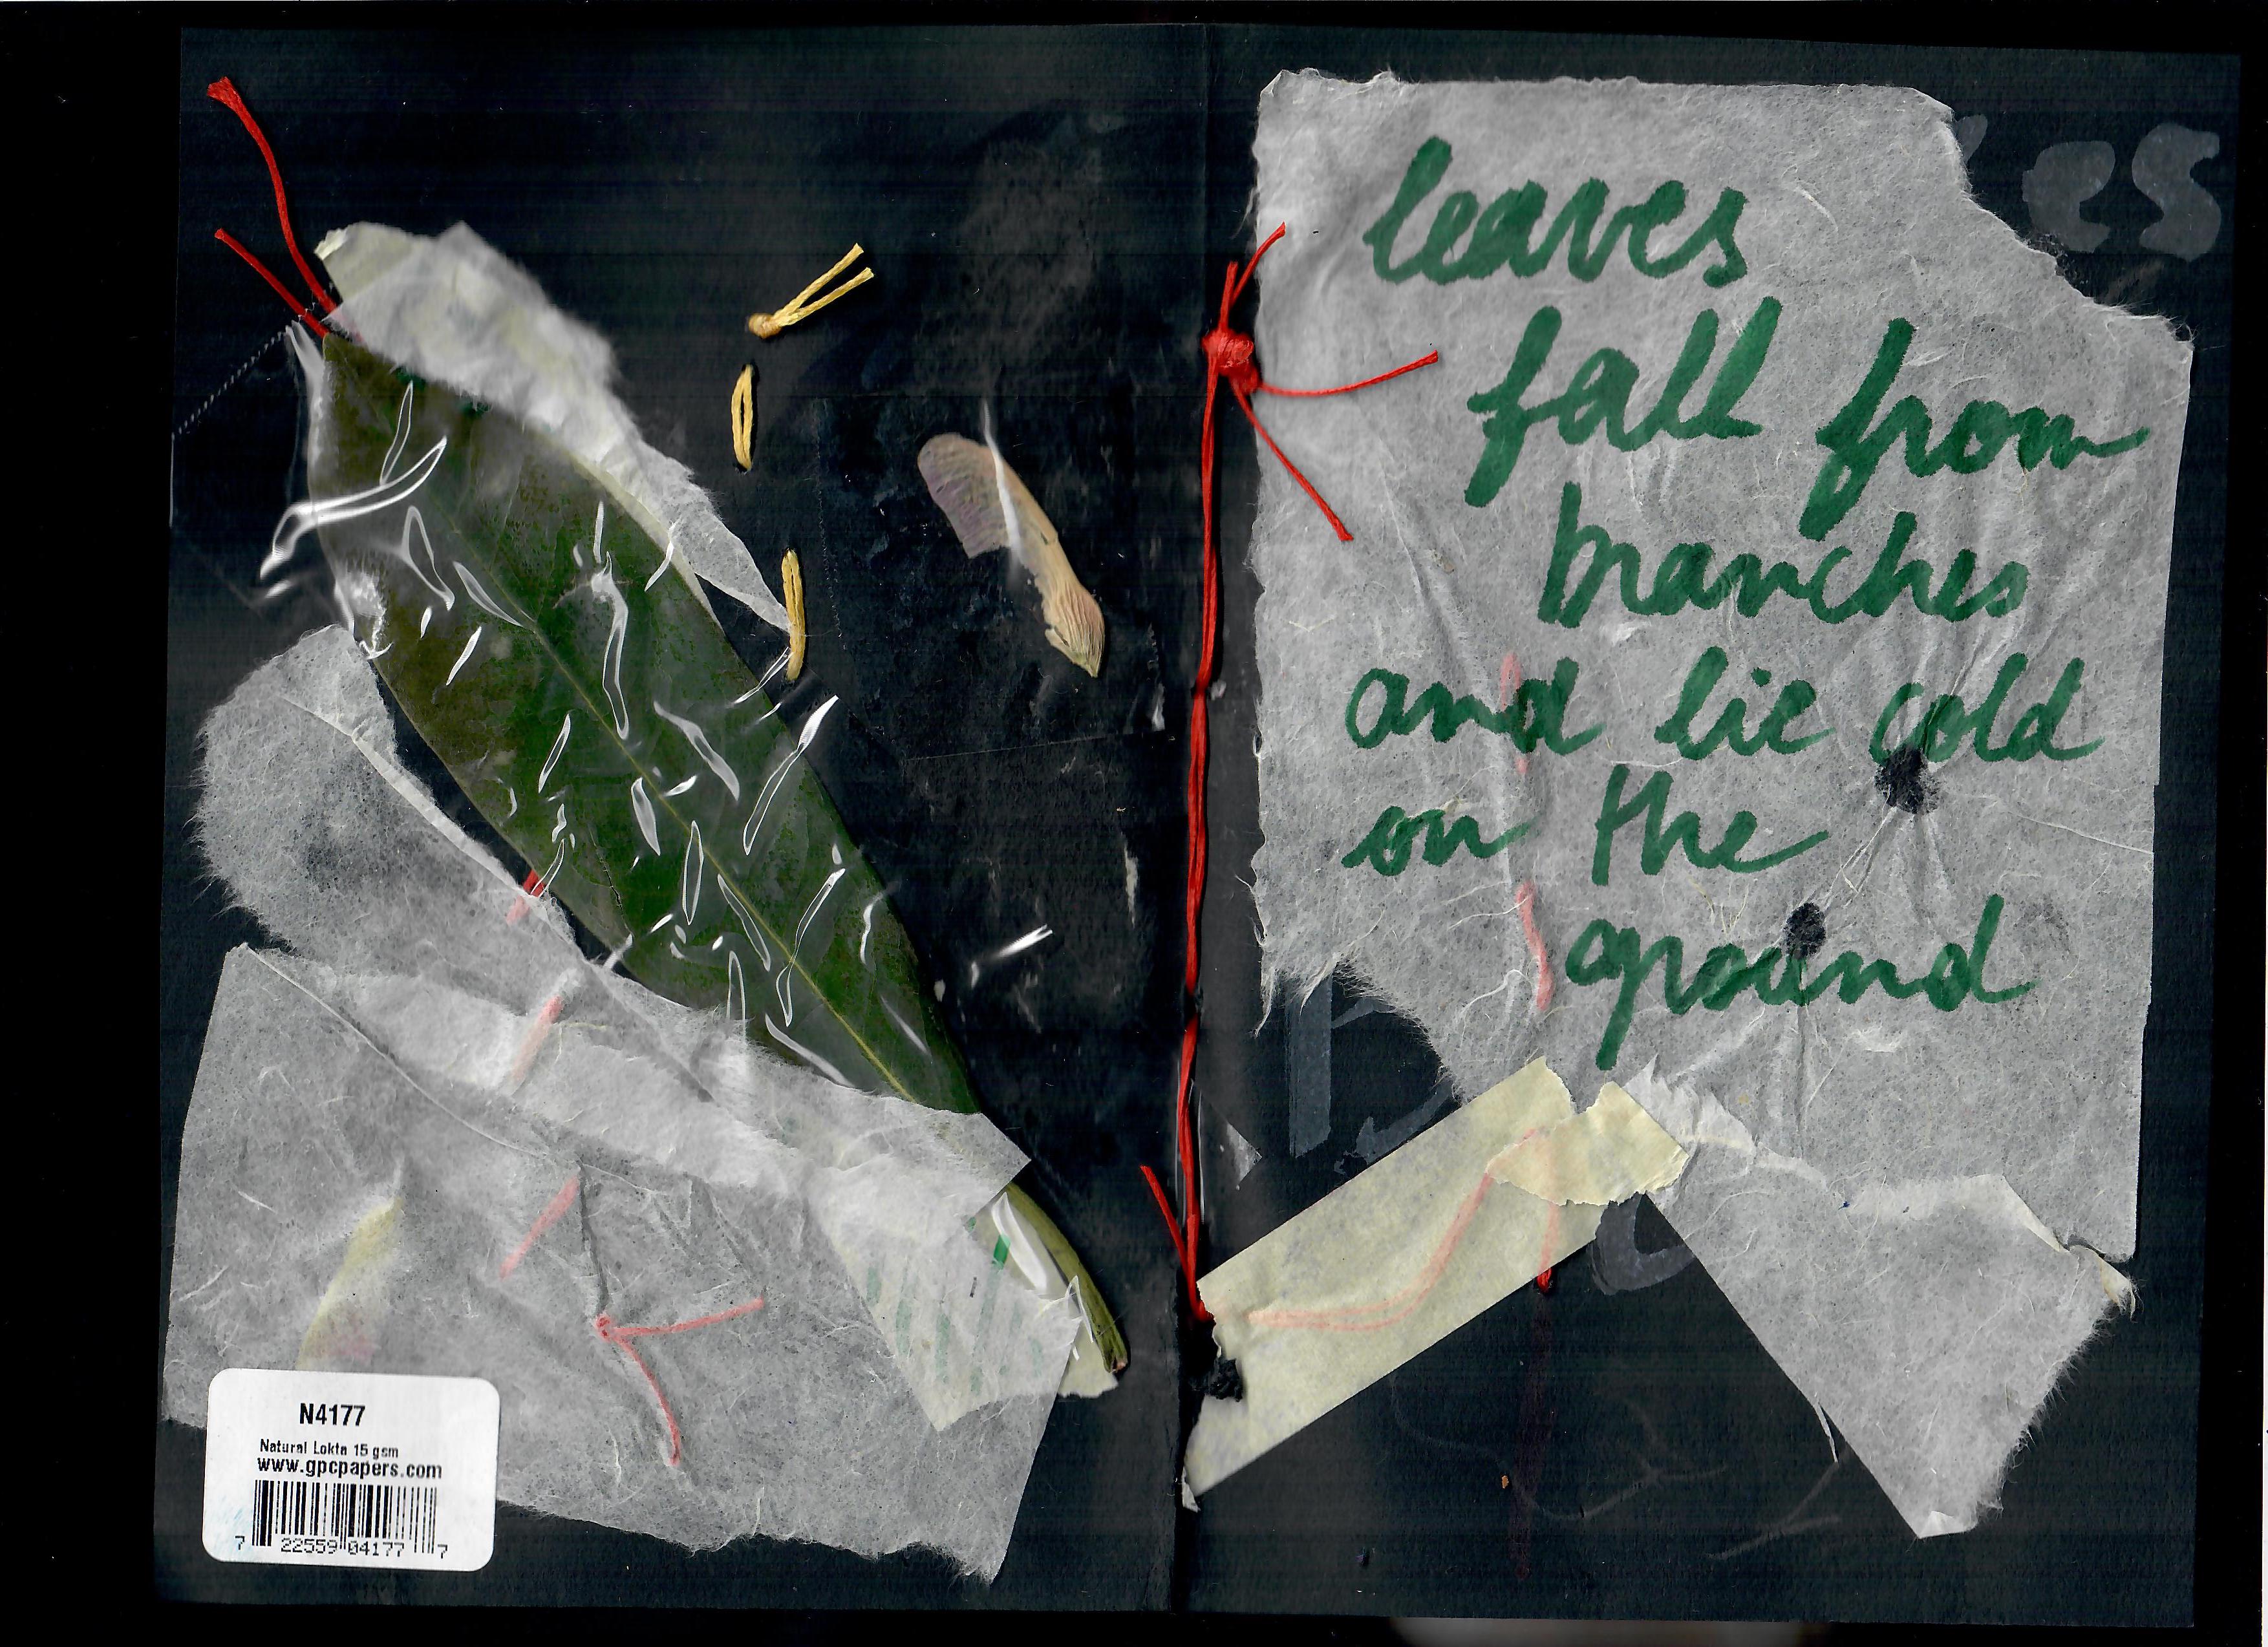 N4177
Natural Lokta 15 gsm
www.gpcpapers.com
7 22559 04177 7
es
leaves
fall from
branches
and lie cold
on the
ground